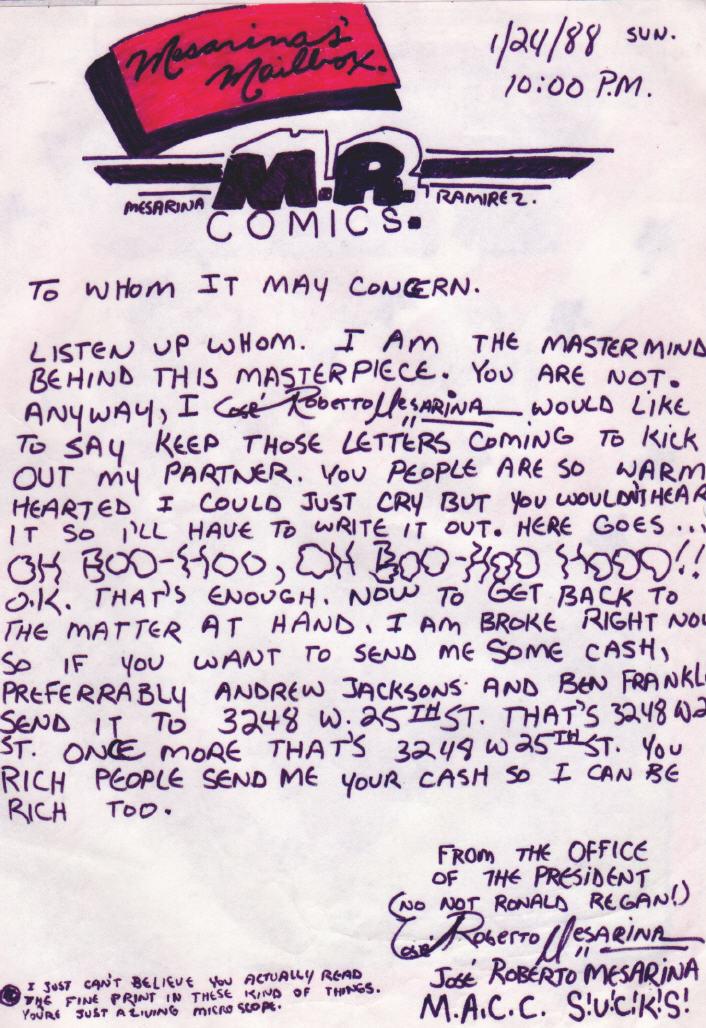 Mesarinas'
Mailbox.
1/24/88 SUN.
10:00 P.M.
M.R.
MESARINA RAMIREZ.
COMICS.
TO WHOM IT MAY CONCERN.
LISTEN UP WHOM. I AM THE MASTERMIND
BEHIND THIS MASTERPIECE. YOU ARE NOT.
ANYWAY, I José Roberto MESARINA WOULD LIKE
TO SAY KEEP THOSE LETTERS COMING TO KICK
OUT MY PARTNER. YOU PEOPLE ARE SO WARM
HEARTED I COULD JUST CRY BUT YOU WOULDN'T HEAR
IT SO I'LL HAVE TO WRITE IT OUT. HERE GOES...
OH BOO-HOO, OH BOO-HOO HOOO!!
O.K. THAT'S ENOUGH. NOW TO GET BACK TO
THE MATTER AT HAND. I AM BROKE RIGHT NOW
SO IF YOU WANT TO SEND ME SOME CASH,
PREFERRABLY ANDREW JACKSONS AND BEN FRANKL
SEND IT TO 3248 W. 25TH ST. THAT'S 3248 W 2
ST. ONCE MORE THAT'S 3248 W 25TH ST. YOU
RICH PEOPLE SEND ME YOUR CASH SO I CAN BE
RICH TOO.
FROM THE OFFICE
OF THE PRESIDENT
(NO NOT RONALD REGAN!)
José Roberto MESARINA
JOSÉ ROBERTO MESARINA
M.A.C.C. S!U!C!K!S!
© I JUST CAN'T BELIEVE YOU ACTUALLY READ
THE FINE PRINT IN THESE KIND OF THINGS.
YOU'RE JUST A LIVING MICROSCOPE.